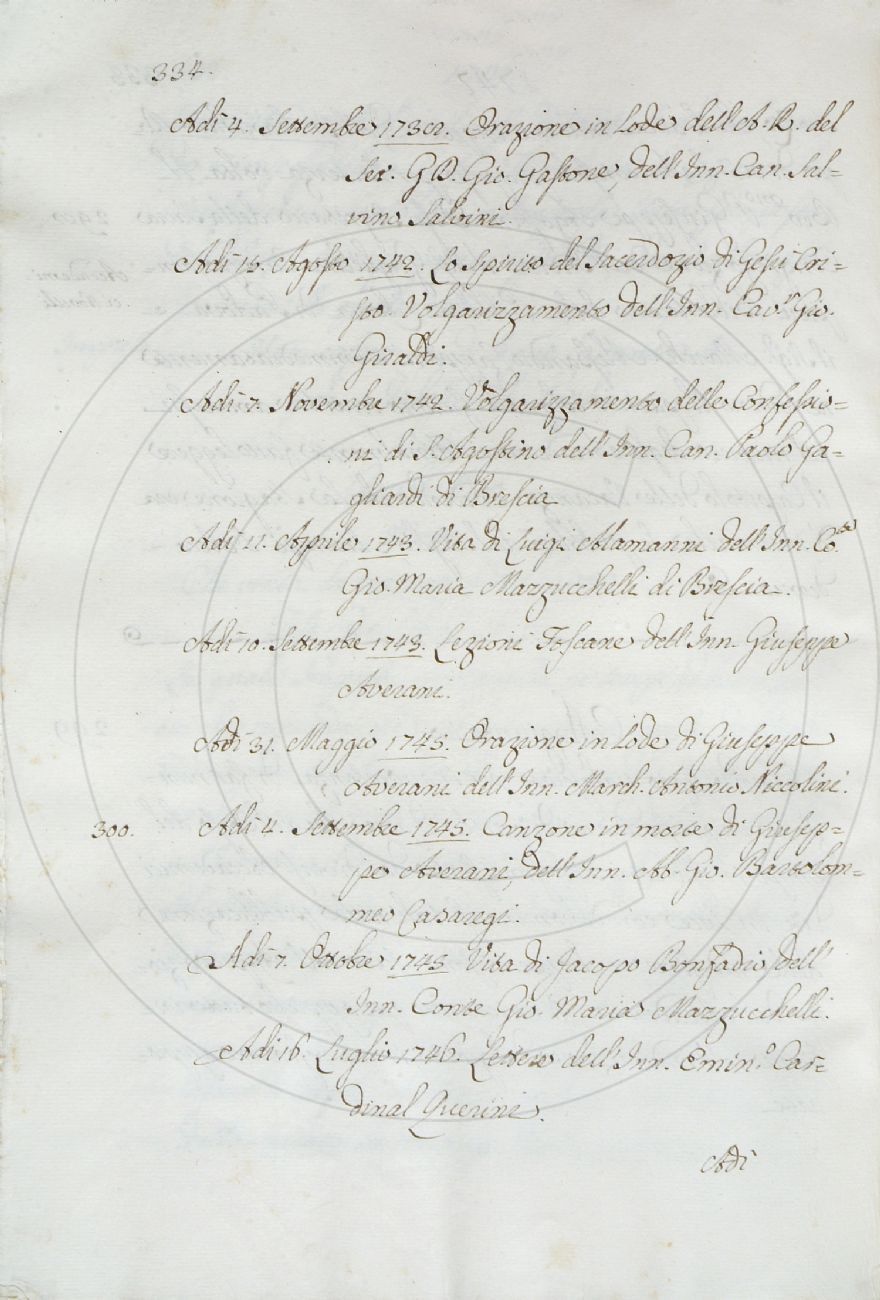 334.
Adì 4. Settembre 1738. Orazione in Lode dell'A. R. del
Ser. G D. Gio. Gastone, dell'Inn. Can. Sal=
vino Salvini.
Adì 18. Agosto 1742. Lo Spirito del Sacerdozio di Gesù Cri=
sto. Volgarizzamento dell'Inn. Cav.r Gio.
Giraldi.
Adì 7. Novembre 1742. Volgarizzamento delle Confessio=
ni di S. Agostino dell'Inn. Can. Paolo Ga=
gliardi di Brescia
Adì 11. Aprile 1743. Vita di Luigi Alamanni dell'Inn. Co.nte
Gio. Maria Mazzucchelli di Brescia.
Adì 10. Settembre 1743. Lezioni Toscane dell'Inn. Giuseppe
Averani.
Adì 31. Maggio 1745. Orazione in Lode di Giuseppe
Averani dell'Inn. March. Antonio Niccolini.
300. Adì 4. Settembre 1745. Canzone in morte di Giusep=
pe Averani, dell'Inn. Ab. Gio. Bartolom=
meo Casaregi.
Adì 7. Ottobre 1745 Vita di Jacopo Bonfadio, dell'
Inn. Conte Gio. Maria Mazzucchelli.
Adì 16. Luglio 1746. Lettere dell'Inn. Emin.o Car=
dinal Querini.
Adì